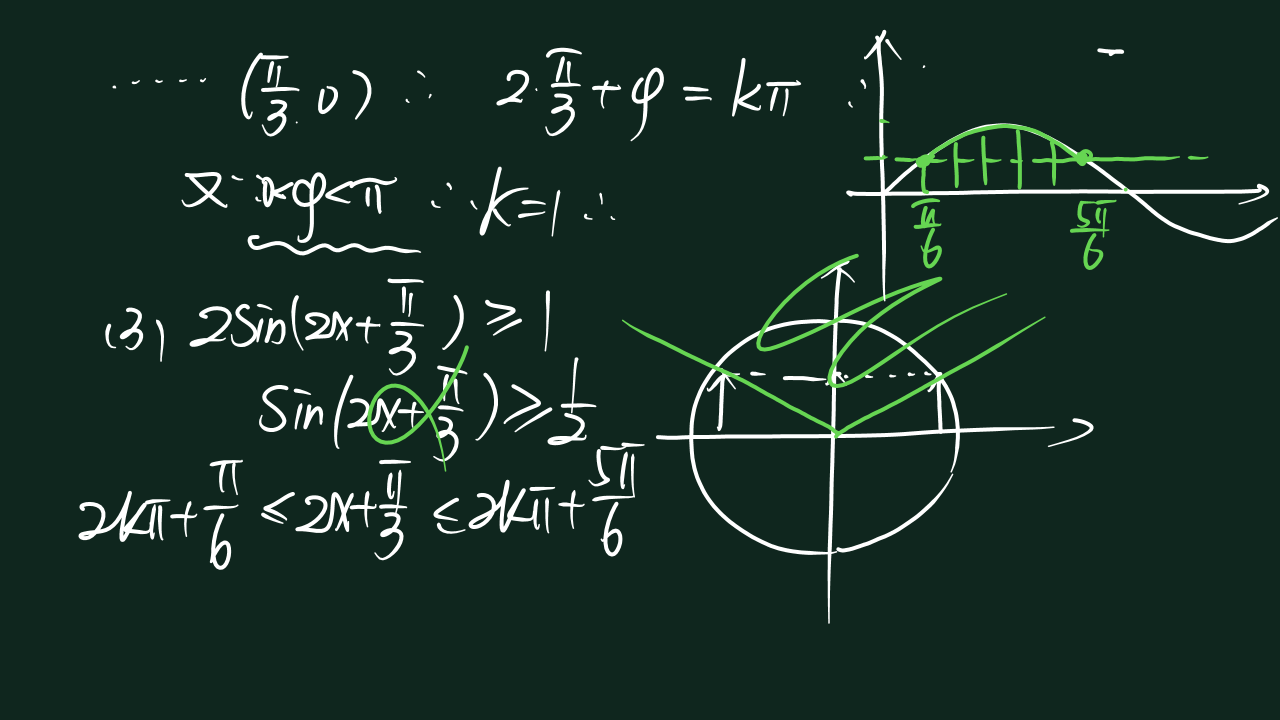 ⋯⋯ (π/3, 0) ∴ 2·π/3+φ=kπ ∴
又∵ 0<φ<π ∴ k=1 ∴
(3) 2Sin(2x+π/3)≥1
Sin(2x+π/3)≥1/2
2kπ+π/6≤2x+π/3≤2kπ+5π/6
π/6 5π/6